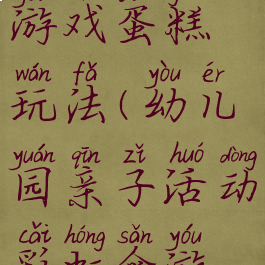 游戏蛋糕
wán fǎ yòu ér
玩法(幼儿
yuán qīn zǐ huó dòng
园亲子活动
cǎi hóng sǎn yóu
彩虹伞游